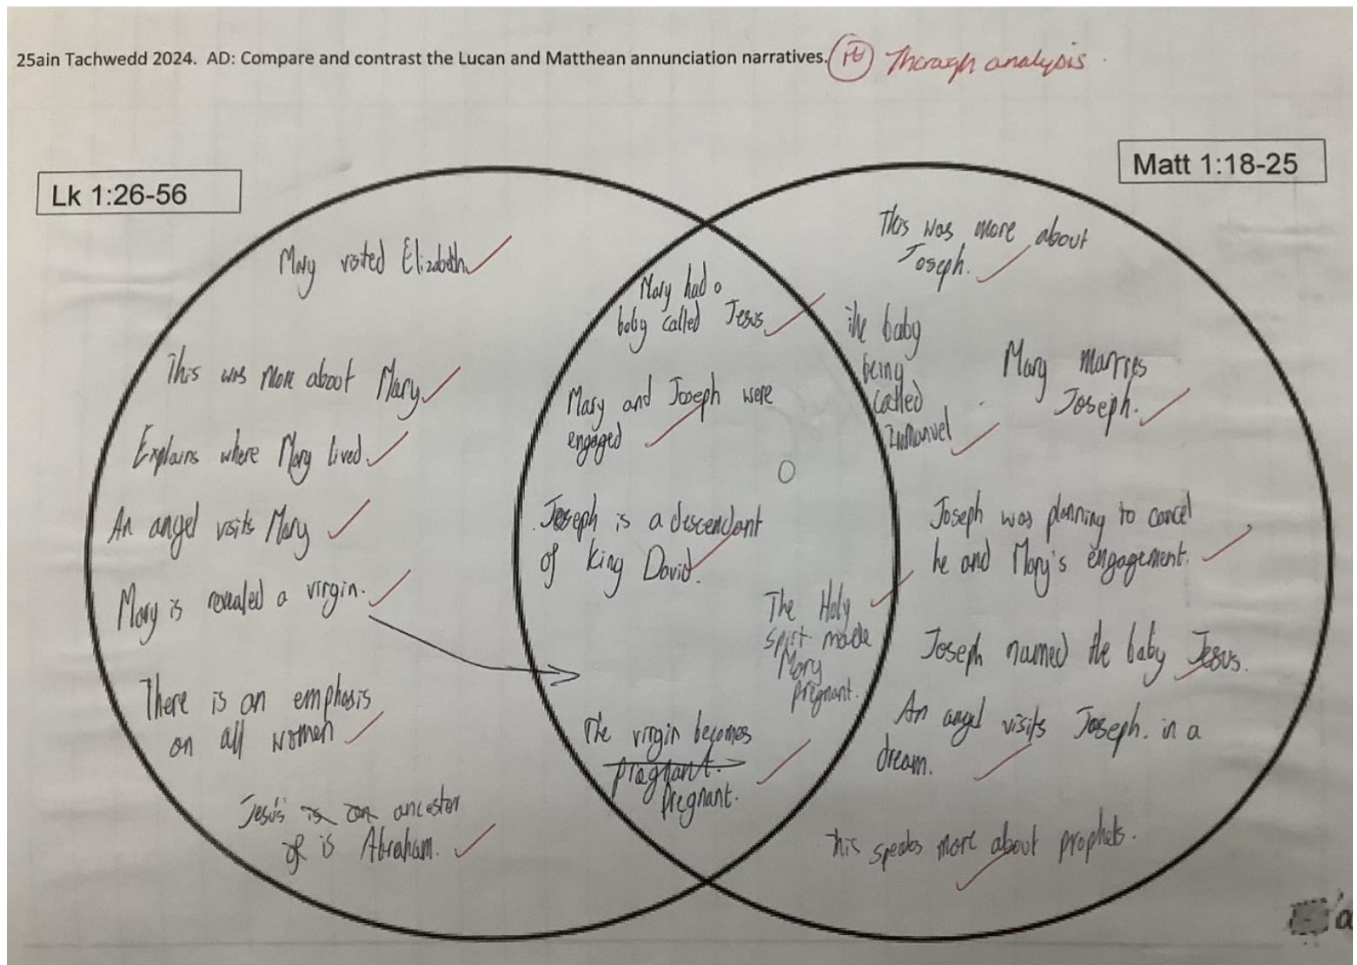 25ain Tachwedd 2024. AD: Compare and contrast the Lucan and Matthean annunciation narratives.
Thorough analysis.
Lk 1:26-56
Mary visited Elizabeth
This was more about Mary
Explains where Mary lived.
An angel visits Mary
Mary is revealed a virgin.
There is an emphasis
on all women
Jesus is an ancestor
of is Abraham.
Mary had a
baby called Jesus
Mary and Joseph were
engaged
Joseph is a descendant
of King David.
The Holy
Spirit made
Mary
pregnant.
The virgin becomes
pragnant.
pregnant.
Matt 1:18-25
This was more about
Joseph.
The baby
being
called
Immanuel
Mary marries
Joseph.
Joseph was planning to cancel
he and Mary's engagement.
Joseph named the baby Jesus.
An angel visits Joseph. in a
dream.
This speaks more about prophets.